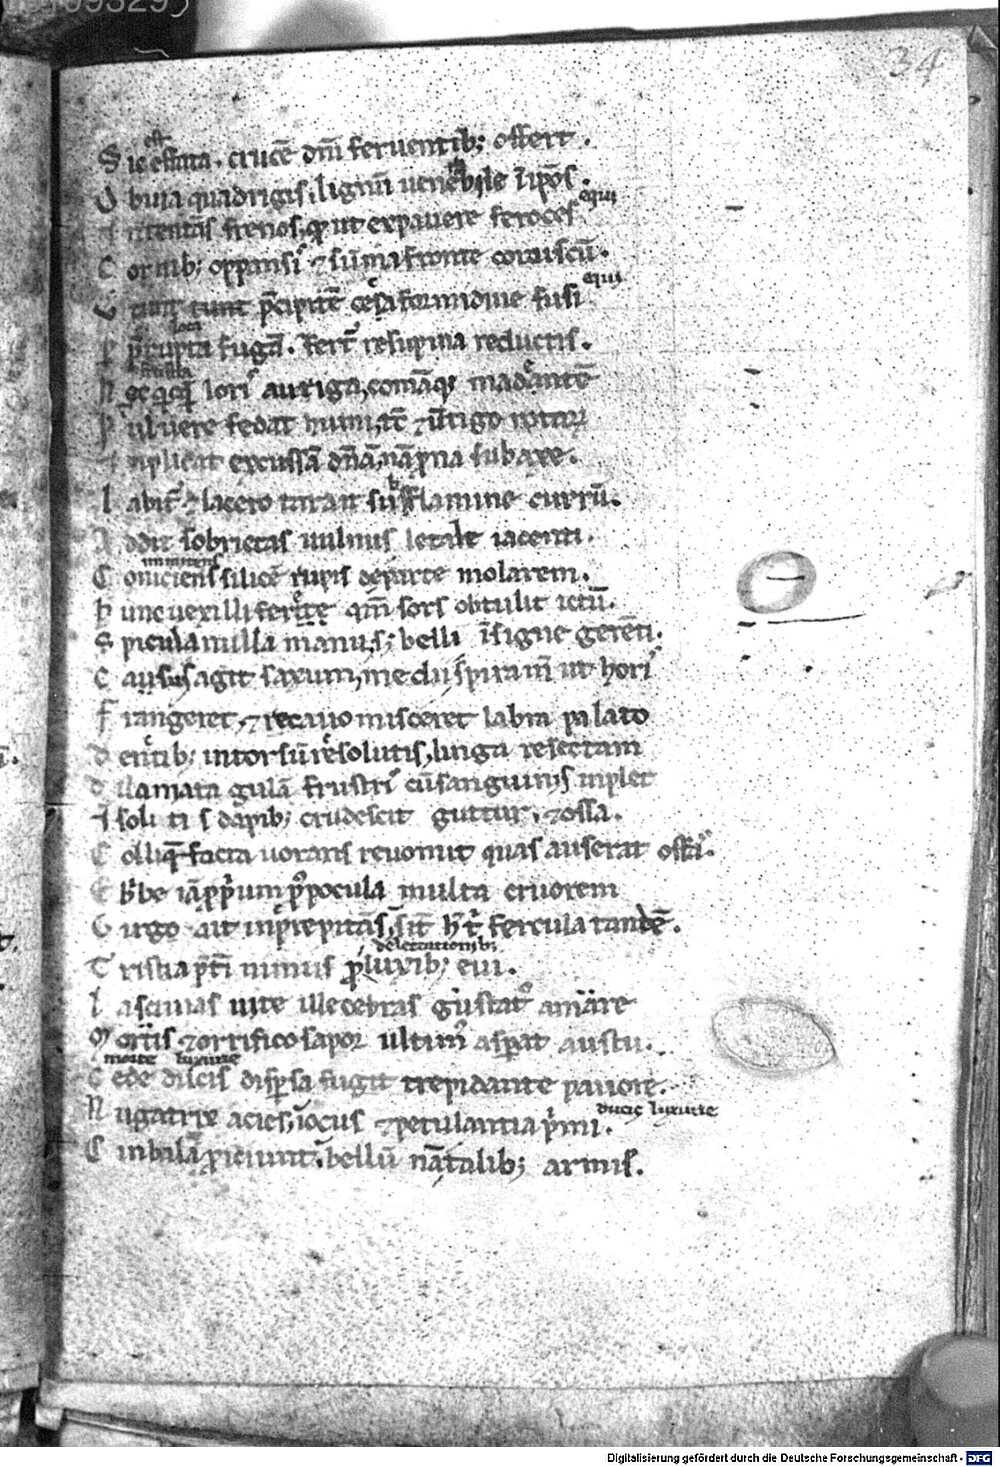 34
est
S ic effata. crucē dn̄i feruentib; offert.
O buia quadrigis, lignū uenerabile ī ip̄os.
equi
I ntentās frenos, qd̄ ut expauere feroces
C ornib; oppansis ⁊ sūma fronte coruscū.
equi
tunt p̄cipitē cęca formidine fusi
loca
P p̄rupta fugā. fert̄ resupina reductis.
frustra
N ec q̄cq̄ loris auriga, comāq; madentē
P uluere fedat humi, tc̄ ⁊ ūtigo rotaꝝ
I nplicat excussā dn̄ā, nā p̄na sub axe.
L abit̄ ⁊ lacero tardat sufflamine currū.
A ddit sobrietas uulnus letale iacenti.
inmittens
C oniciens silicē rupis de parte molarem.
H unc uexillifere qm̄ sors obtulit ictū.
S picula nulla manu, s; belli īsigne gerēti.
C asus agit saxum, medii spiram̄ ut horis
F rangeret, ⁊ recauo misceret labra palato
D entib; introrsū resolutis, lingua resectam
D ilaniata gulā frustris cū sanguinis inplet
I nsolitis dapib; crudescit guttur, ⁊ ossa.
C olliq̄facta uorans reuomit quas auserat offas.
E bibe iā p̄priū p̄ pocula multa cruorem
V irgo ait increpitās, sīt h̄ t̄ fercula tandē.
delectationib;
T ristia p̄t̄i nimiis p̄ luxib; eui.
L asciuas uite illecebras gustat̄ amare
M ortis ⁊ orrifico sapor ultim̄ asp̄at austu.
morte luxurie
C ede ducis disp̄sa fugit trepidante pauore.
ducis luxurie
N ugatrix acies, iocus ⁊ petulantia p̄mi.
C inbala p̄iciunt, bellū nā talib; armis.
Digitalisierung gefördert durch die Deutsche Forschungsgemeinschaft - DFG